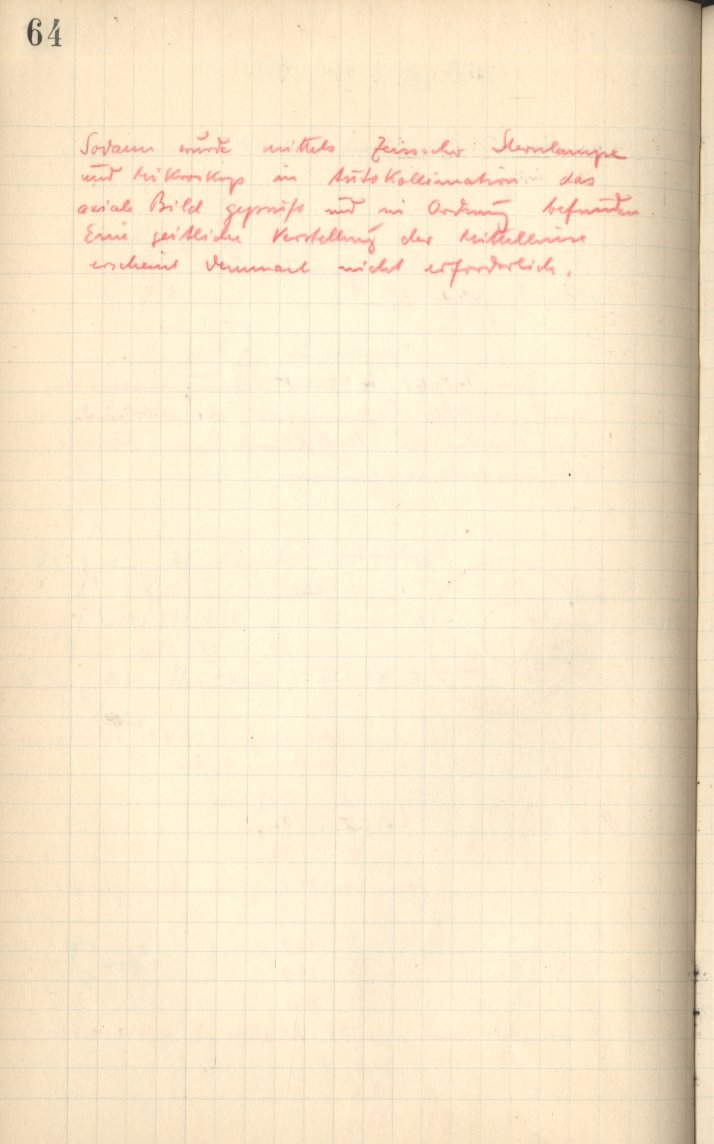 64
Sodann wurde mittels Zeissscher Sternlampe
und Mikroskop in Autokollimation das
axiale Bild geprüft und in Ordnung befunden
Eine seitliche Verstellung der Mittellinse
erscheint demnach nicht erforderlich.